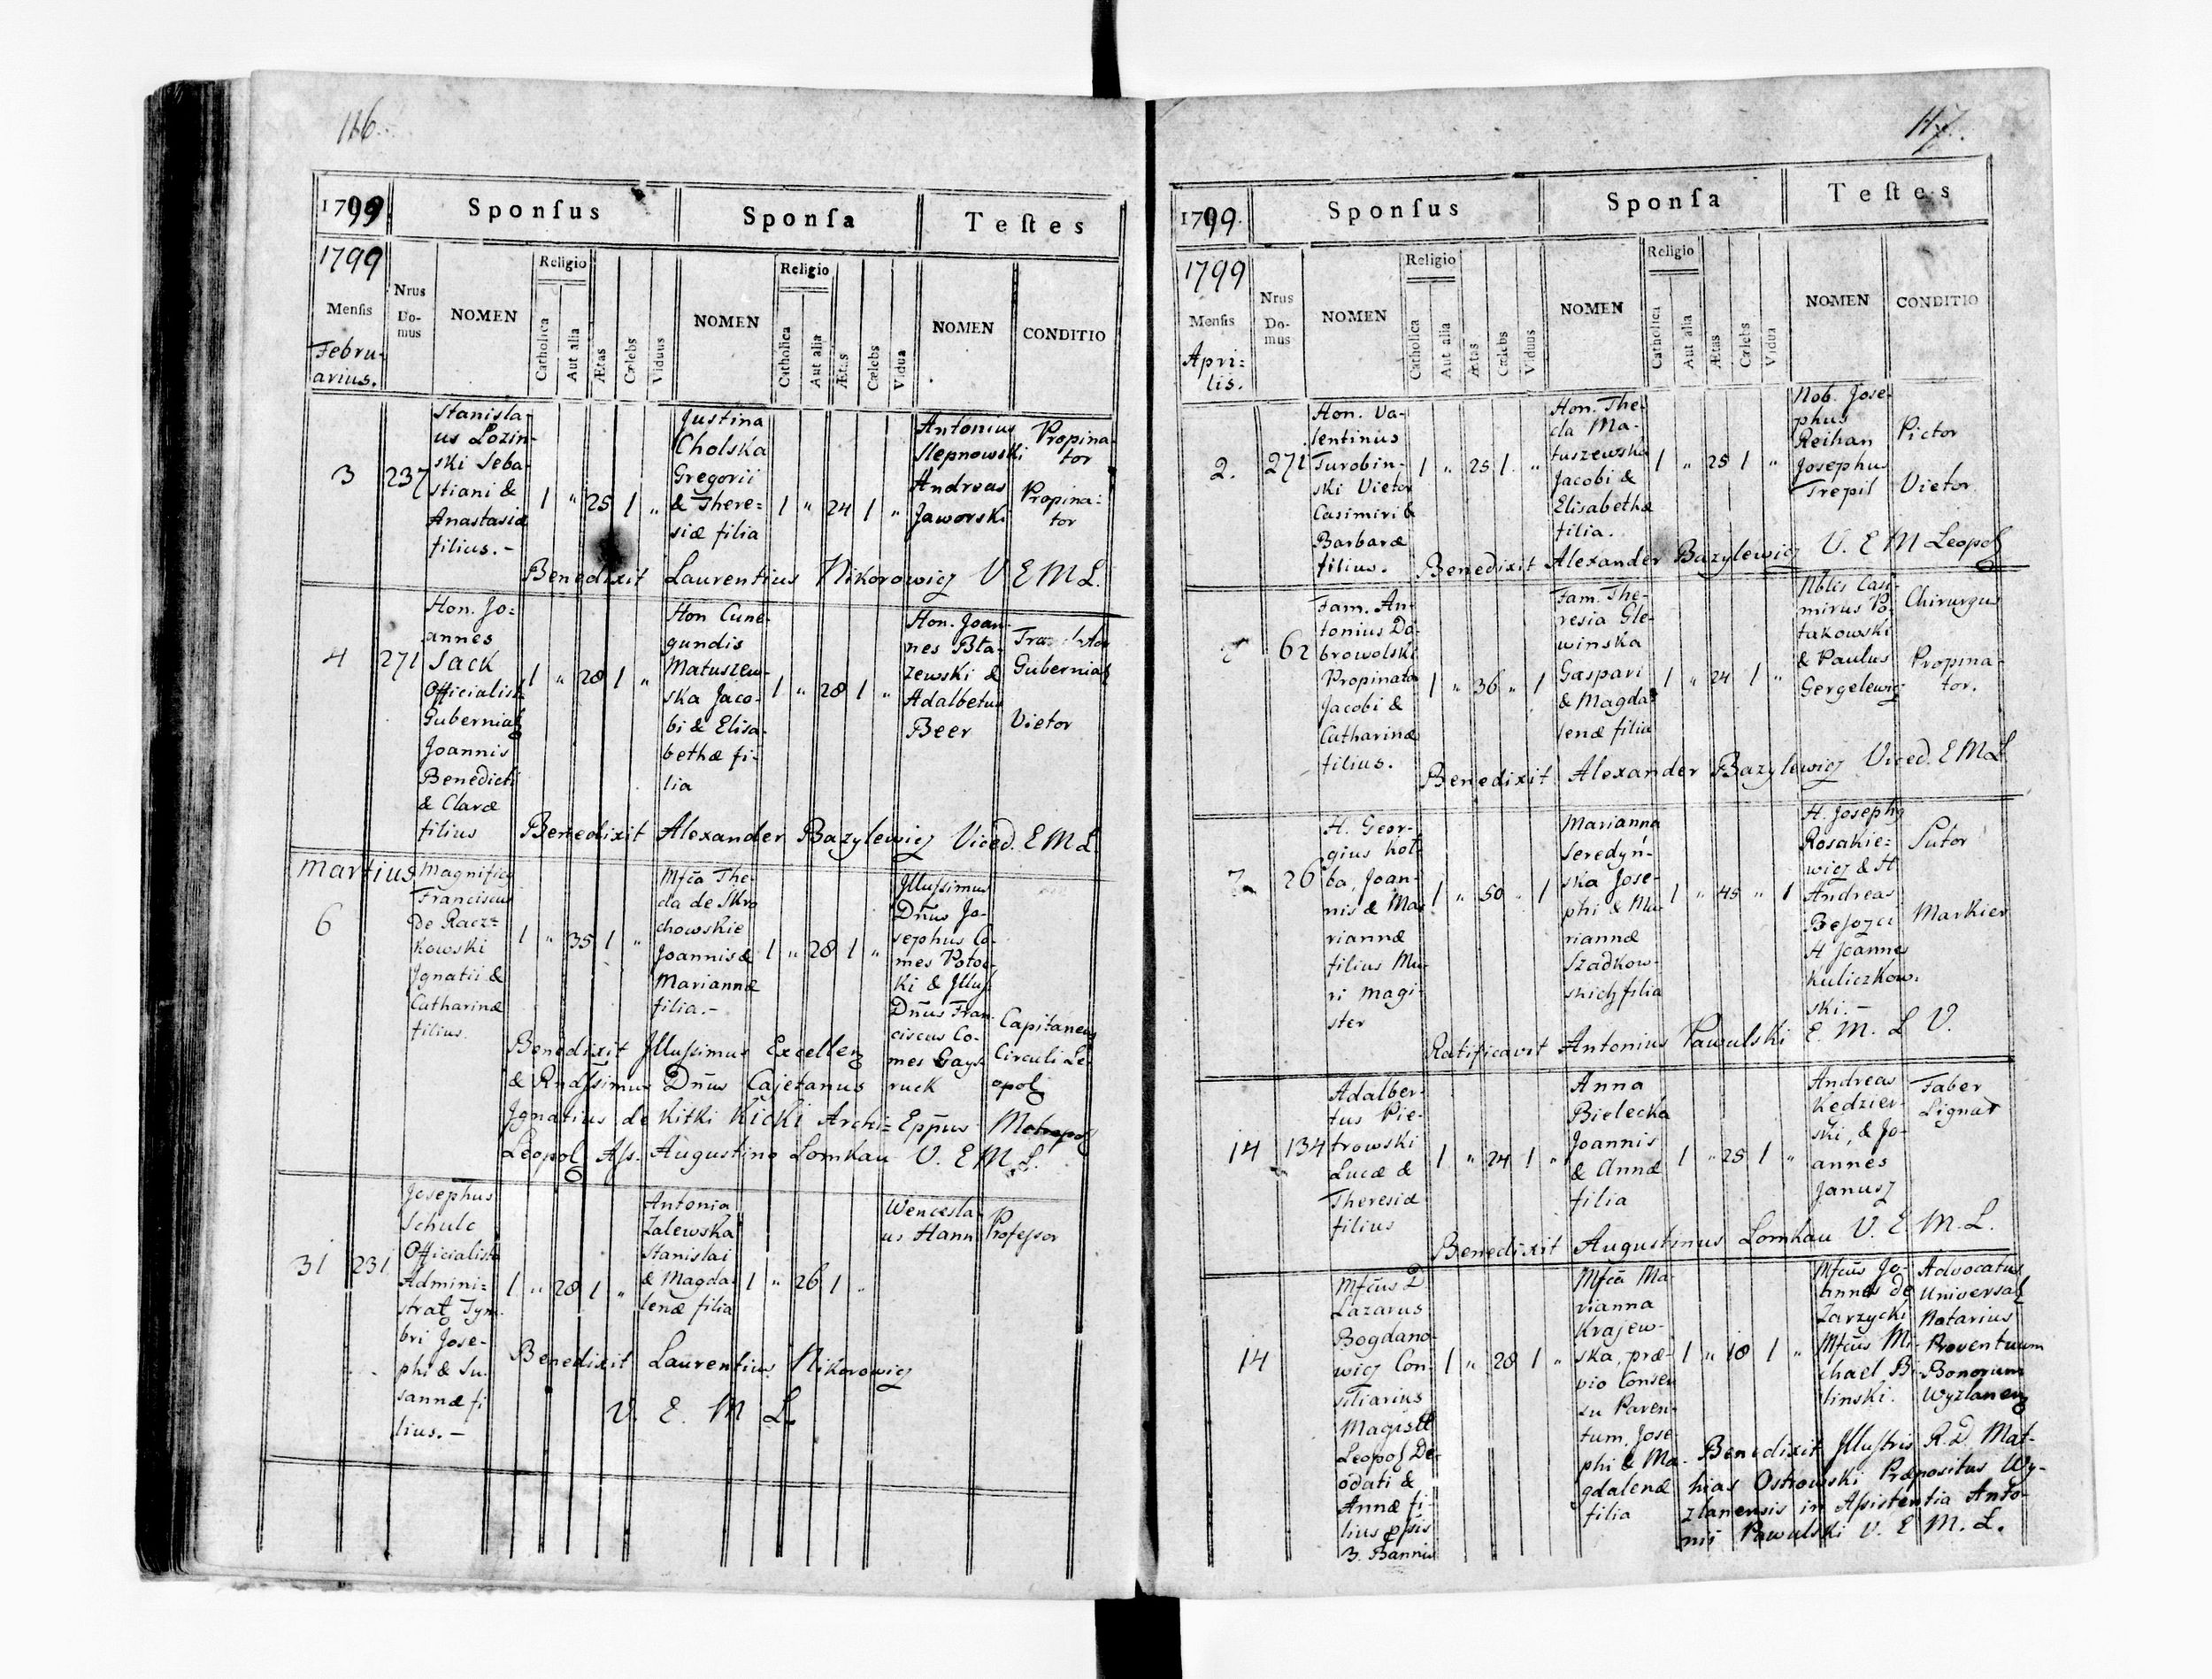 116.
1799
Sponſus
Sponſa
Teſtes
1799
Menſis
Febru-
arius.
Nrus
Do-
mus
NOMEN
Religio
Catholica
Aut alia
Ætas
Cælebs
Viduus
NOMEN
Religio
Catholica
Aut alia
Ætas
Cælebs
Vidua
NOMEN
CONDITIO
3
237
Stanisla-
us Lozin-
ski Seba-
stiani &
Anastasiæ
filius.-
1 " 25 1 "
Justina
Cholska
Gregorii
& There=
siæ filia
1 " 24 1 "
Antonius
Slepnowski
Andreas
Jaworski
Propina-
tor
Propina-
tor
Benedixit Laurentius Nikorowicz V E M L.
4
271
Hon. Jo=
annes
Sack
Officialist
Gubernial
Joannis
Benedicti
& Claræ
filius
1 " 28 1 "
Hon Cune-
gundis
Matuszew-
ska Jaco-
bi & Elisa-
bethæ fi-
lia
1 " 28 1 "
Hon. Joan-
nes Bla-
zewski &
Adalbetus
Beer
Gubernial
Vietor
Benedixit Alexander Bazylewicz Viced. E M L.
Martius
6
Magnificus
Franciscus
de Racz=
kowski
Ignatii &
Catharinæ
filius.
1 " 35 1 "
Mfca The-
cla de Skro
chowskie
Joannis &
Mariannæ
filia.-
1 " 28 1 "
Illuſsimus
Dnus Jo-
sephus Co-
mes Potoc-
ki & Illuſ
Dnus Fran-
ciscus Co-
mes Gays-
ruck
Capitaneus
Circuli Le-
opol
Benedixit Illuſsimus Excellen
& Rndſsimus Dnus Cajetanus
Ignatius de Kitki Kicki Archi=Eppus Metropol
Leopol Aſs. Augustino Lomhau V. E M L.
31
231
Josephus
Schulc
Officialista
Admini=
strat Tym-
bri Jose-
phi & Su-
sannæ fi-
lius.-
1 " 28 1 "
Antonia
Zalewska
Stanislai
& Magda-
lenæ filia
1 " 26 1 "
Wencesla-
us Hann
Profeſsor
Benedixit Laurentius Nikorowicz
V. E. M L.
117.
1799.
Sponſus
Sponſa
Teſtes
1799
Menſis
Apri=
lis.
Nrus
Do-
mus
NOMEN
Religio
Catholica
Aut alia
Ætas
Cælebs
Viduus
NOMEN
Religio
Catholica
Aut alia
Ætas
Cælebs
Vidua
NOMEN
CONDITIO
2.
271
Hon. Va-
lentinus
Turobin-
ski Vietor
Casimiri &
Barbaræ
filius.
1 " 25 1 "
Hon. The-
cla Ma-
tuszewska
Jacobi &
Elisabethæ
filia.
1 " 25 1 "
Nob. Jose-
phus
Reihan
Josephus
Trepil
Pictor
Vietor
Benedixit Alexander Bazylewicz V. E M Leopol
62
Fam. An-
tonius Do-
browolski
Propinator
Jacobi &
Catharinæ
filius.
1 " 36 " 1
Fam. The-
resia Gle-
winska
Gaspari
& Magda-
lenæ filia
1 " 24 1 "
Nbles Casi-
mirus Po-
takowski
& Paulus
Gergelewicz
Chirurgus
Propina-
tor.
Benedixit Alexander Bazylewicz Viced. E M L
7.
26
H. Geor-
gius Kot-
ba, Joan-
nis & Ma-
riannæ
filius Mu-
ri Magi-
ster
1 " 50 " 1
Marianna
Seredyń-
ska Jose-
phi & Ma-
riannæ
Szadkow-
skich filia
1 " 45 " 1
H. Josephus
Rosakie=
wicz & H
Andreas
H Joannes
Kuliczkow-
ski.-
Sutor
Markier
Ratificavit Antonius Pawulski E. M. L V.
14
134
Adalber-
tus Pie-
trowski
Lucæ &
Theresiæ
filius
1 " 24 1 "
Anna
Bielecka
Joannis
& Annæ
filia
1 " 25 1 "
Andreas
Kedzier-
ski, & Jo-
annes
Janusz
Faber
Lignar
Benedixit Augustinus Lomhau V. E M. L.
14
Mfcus D
Lazarus
Bogdano-
wicz Con-
siliarius
Magist
Leopol De-
odati &
Annæ fi-
lius pſsis
3. Bannis
1 " 28 1 "
Mfca Ma-
rianna
Krajew-
ska, præ-
vio Consen
su Paren-
tum, Jose-
phi & Ma-
gdalenæ
filia
1 " 18 1 "
Mfcus Jo-
annes de
Zarzycki
Mfcus Mi-
chael Bi-
linski.
Advocatus
Universal
Notarius
Proventuum
Bonorum
Wyzlanen
Benedixit Illuſtris R. D. Mat-
hias Ostrowski Præpositus Wy-
zlanensis in Aſsistentia Anto-
nii Pawulski V. E M. L.